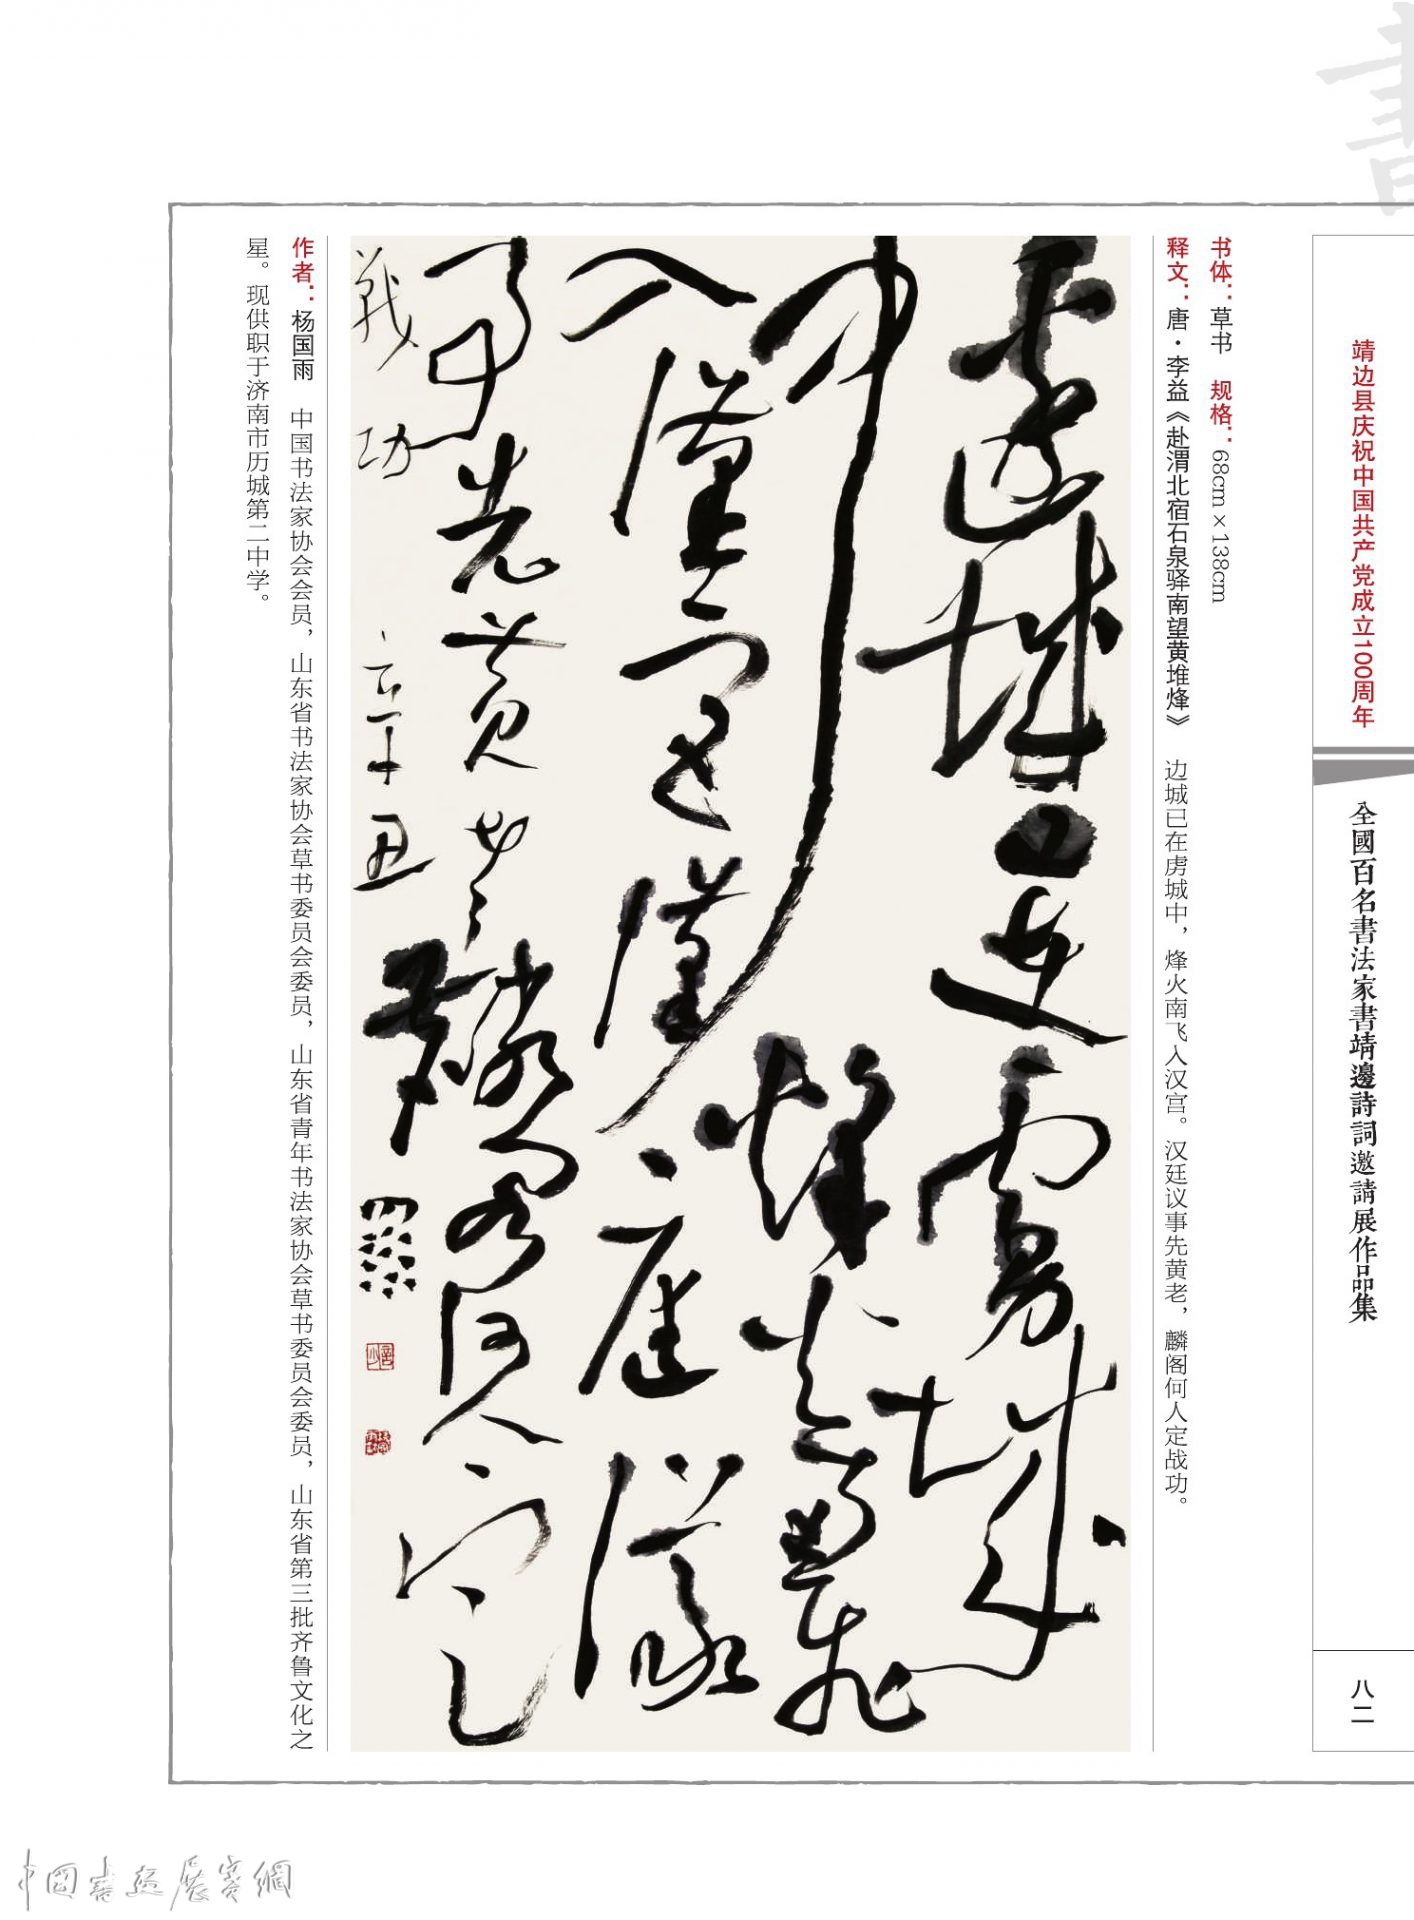 書
靖边县庆祝中国共产党成立100周年
全國百名書法家書靖邊詩詞邀請展作品集
八二
书体：草书 规格：68cm×138cm
释文：唐·李益《赴渭北宿石泉驿南望黄堆烽》 边城已在虏城中，烽火南飞人汉宫。汉廷议事先黄老，麟阁何人定战功。
邊城已在虜城
中烽火南飛
入漢宮漢庭議
事先黄老麟閣何人定
戰功 辛丑夏
作者：杨国雨 中国书法家协会会员，山东省书法家协会草书委员会委员，山东省青年书法家协会草书委员会委员，山东省第三批齐鲁文化之
星。现供职于济南市历城第二中学。
中國書畫展賽網